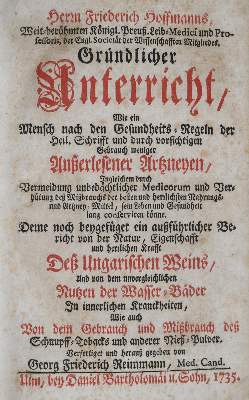 Herrn Friederich Hoffmanns,
Weit-berühmten Königl. Preuß. Leib-Medici und Pro-
fessoris, der Engl. Societät der Wissenschafften Mitgliedes,
Gründlicher
Unterricht,
Wie ein
Mensch nach den Gesundheits-Regeln der
Heil. Schrifft und durch vorsichtigen
Gebrauch weniger
Außerlesener Artzneyen,
Ingleichem durch
Vermeidung unbedächtlicher Medicorum und Ver-
hütung deß Mißbrauchs der besten und herrlichsten Nahrungs-
und Artzney-Mittel, sein Leben und Gesundheit
lang conserviren könne.
Deme noch beygefüget ein außführlicher Be-
richt von der Natur, Eigenschafft
und herrlichen Krafft
Deß Ungarischen Weins,
Und von dem unvergleichlichen
Nutzen der Wasser-Bäder
In innerlichen Kranckheiten,
Wie auch
Von dem Gebrauch und Mißbrauch deß
Schnupff-Tobacks und anderer Nieß-Pulver.
Verfertiget und heraus gegeben von
Georg Friederich Reimmann, Med. Cand.
Ulm, bey Daniel Bartholomäi u. Sohn, 1735.